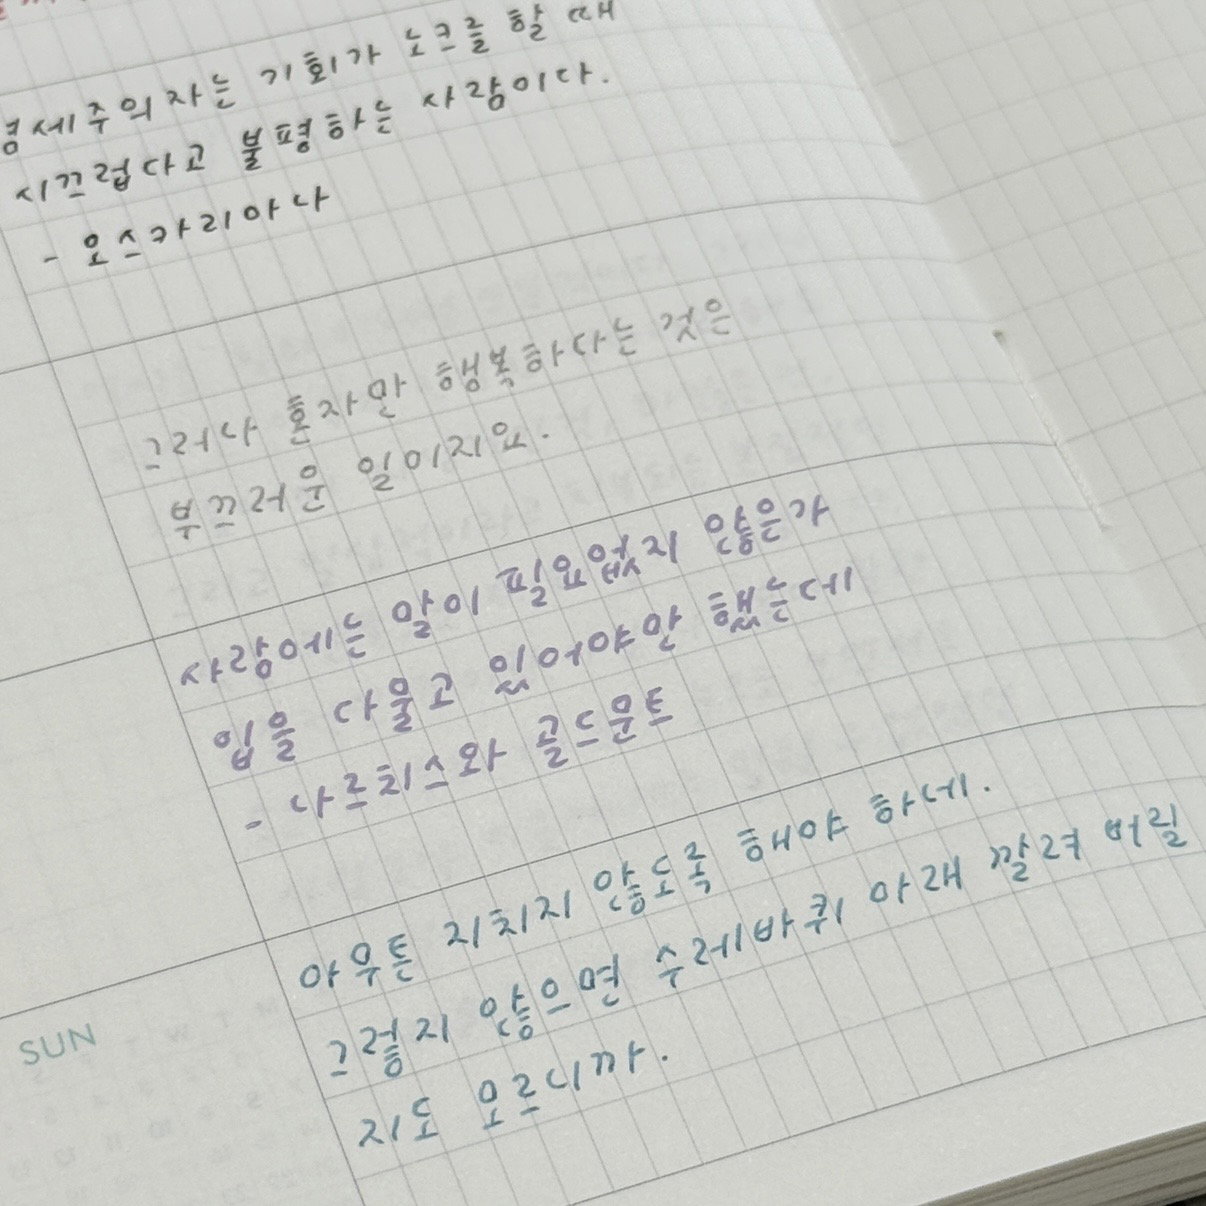 염세주의자는 기회가 노크를 할 때
시끄럽다고 불평하는 사람이다.
- 오스카리아나
그러나 혼자만 행복하다는 것은
부끄러운 일이지요.
사랑에는 말이 필요없지 않은가
입을 다물고 있어야만 했는데
- 나르치스와 골드문트
아무튼 지치지 않도록 해야 하네.
그렇지 않으면 수레바퀴 아래 깔려 버릴
SUN
지도 모르니까.